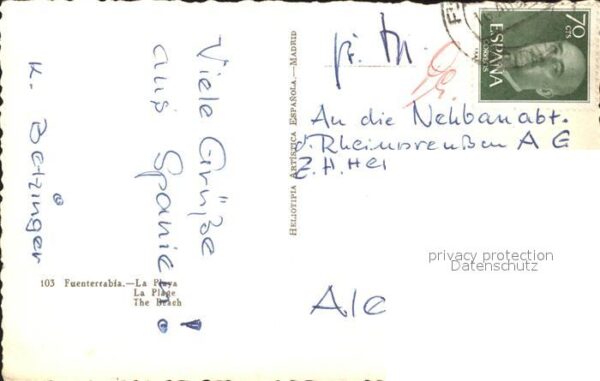 Viele Grüße
aus Spanien!
K. Betzinger
103 Fuenterrabía.—La Playa
La Plage
The Beach
HELIOTIPIA ARTÍSTICA ESPAÑOLA.—MADRID
70
CTS
ESPAÑA
CORREOS
An die Nebbauabt.
d. Rheinpreußen A G
Z. H. He
privacy protection
Datenschutz